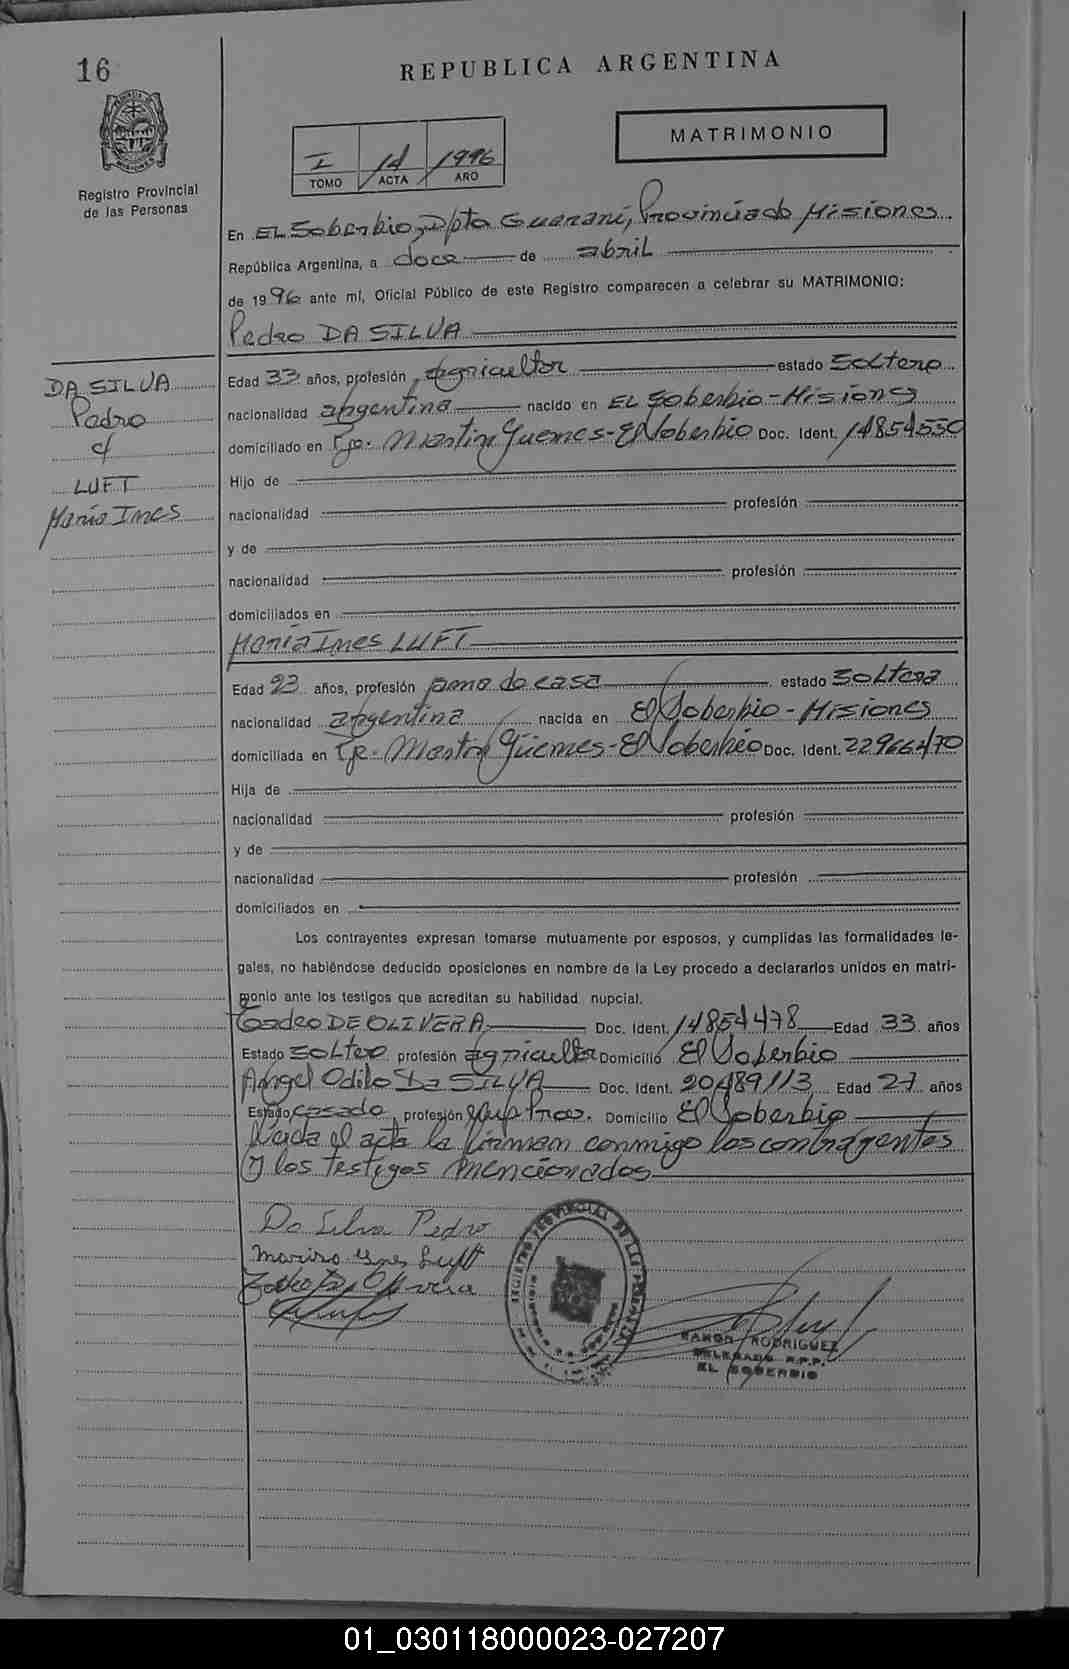 16
REPUBLICA ARGENTINA
MATRIMONIO
I 14 1996
TOMO ACTA AÑO
Registro Provincial
de las Personas
En EL Soberbio, Dpto Guarani, Provincia de Misiones
República Argentina, a doce de abril
de 1996 ante mí, Oficial Público de este Registro comparecen a celebrar su MATRIMONIO:
Pedro DA SILVA
DA SILVA
Pedro
c/
LUFT
Maria Ines
Edad 33 años, profesión agricultor estado Soltero
nacionalidad argentina nacido en EL Soberbio - Misiones
domiciliado en Martin Guemes - El Soberbio Doc. Ident. 14854530
Hijo de
nacionalidad profesión
y de
nacionalidad profesión
domiciliados en
Maria Ines LUFT
Edad 23 años, profesión ama de casa estado Soltera
nacionalidad argentina nacida en El Soberbio - Misiones
domiciliada en Martin Güemes - El Soberbio Doc. Ident.
Hija de
nacionalidad profesión
y de
nacionalidad profesión
domiciliados en
Los contrayentes expresan tomarse mutuamente por esposos, y cumplidas las formalidades le-
gales, no habiéndose deducido oposiciones en nombre de la Ley procedo a declararlos unidos en matri-
monio ante los testigos que acreditan su habilidad nupcial.
Tadeo DE OLIVERA Doc. Ident. 14854478 Edad 33 años
Estado soltero profesión agricultor Domicilio El Soberbio
Angel Odilo Da SILVA Doc. Ident. 20489113 Edad 27 años
Estado casado, profesión Domicilio El Soberbio
Leida el acta la firman conmigo los contrayentes
y los testigos mencionados
Da Silva Pedro
Luft
Olivera
REGISTRO PROVINCIAL DE LAS PERSONAS
RAMON RODRIGUEZ
DELEGADO R.P.P.
EL SOBERBIO
01_030118000023-027207